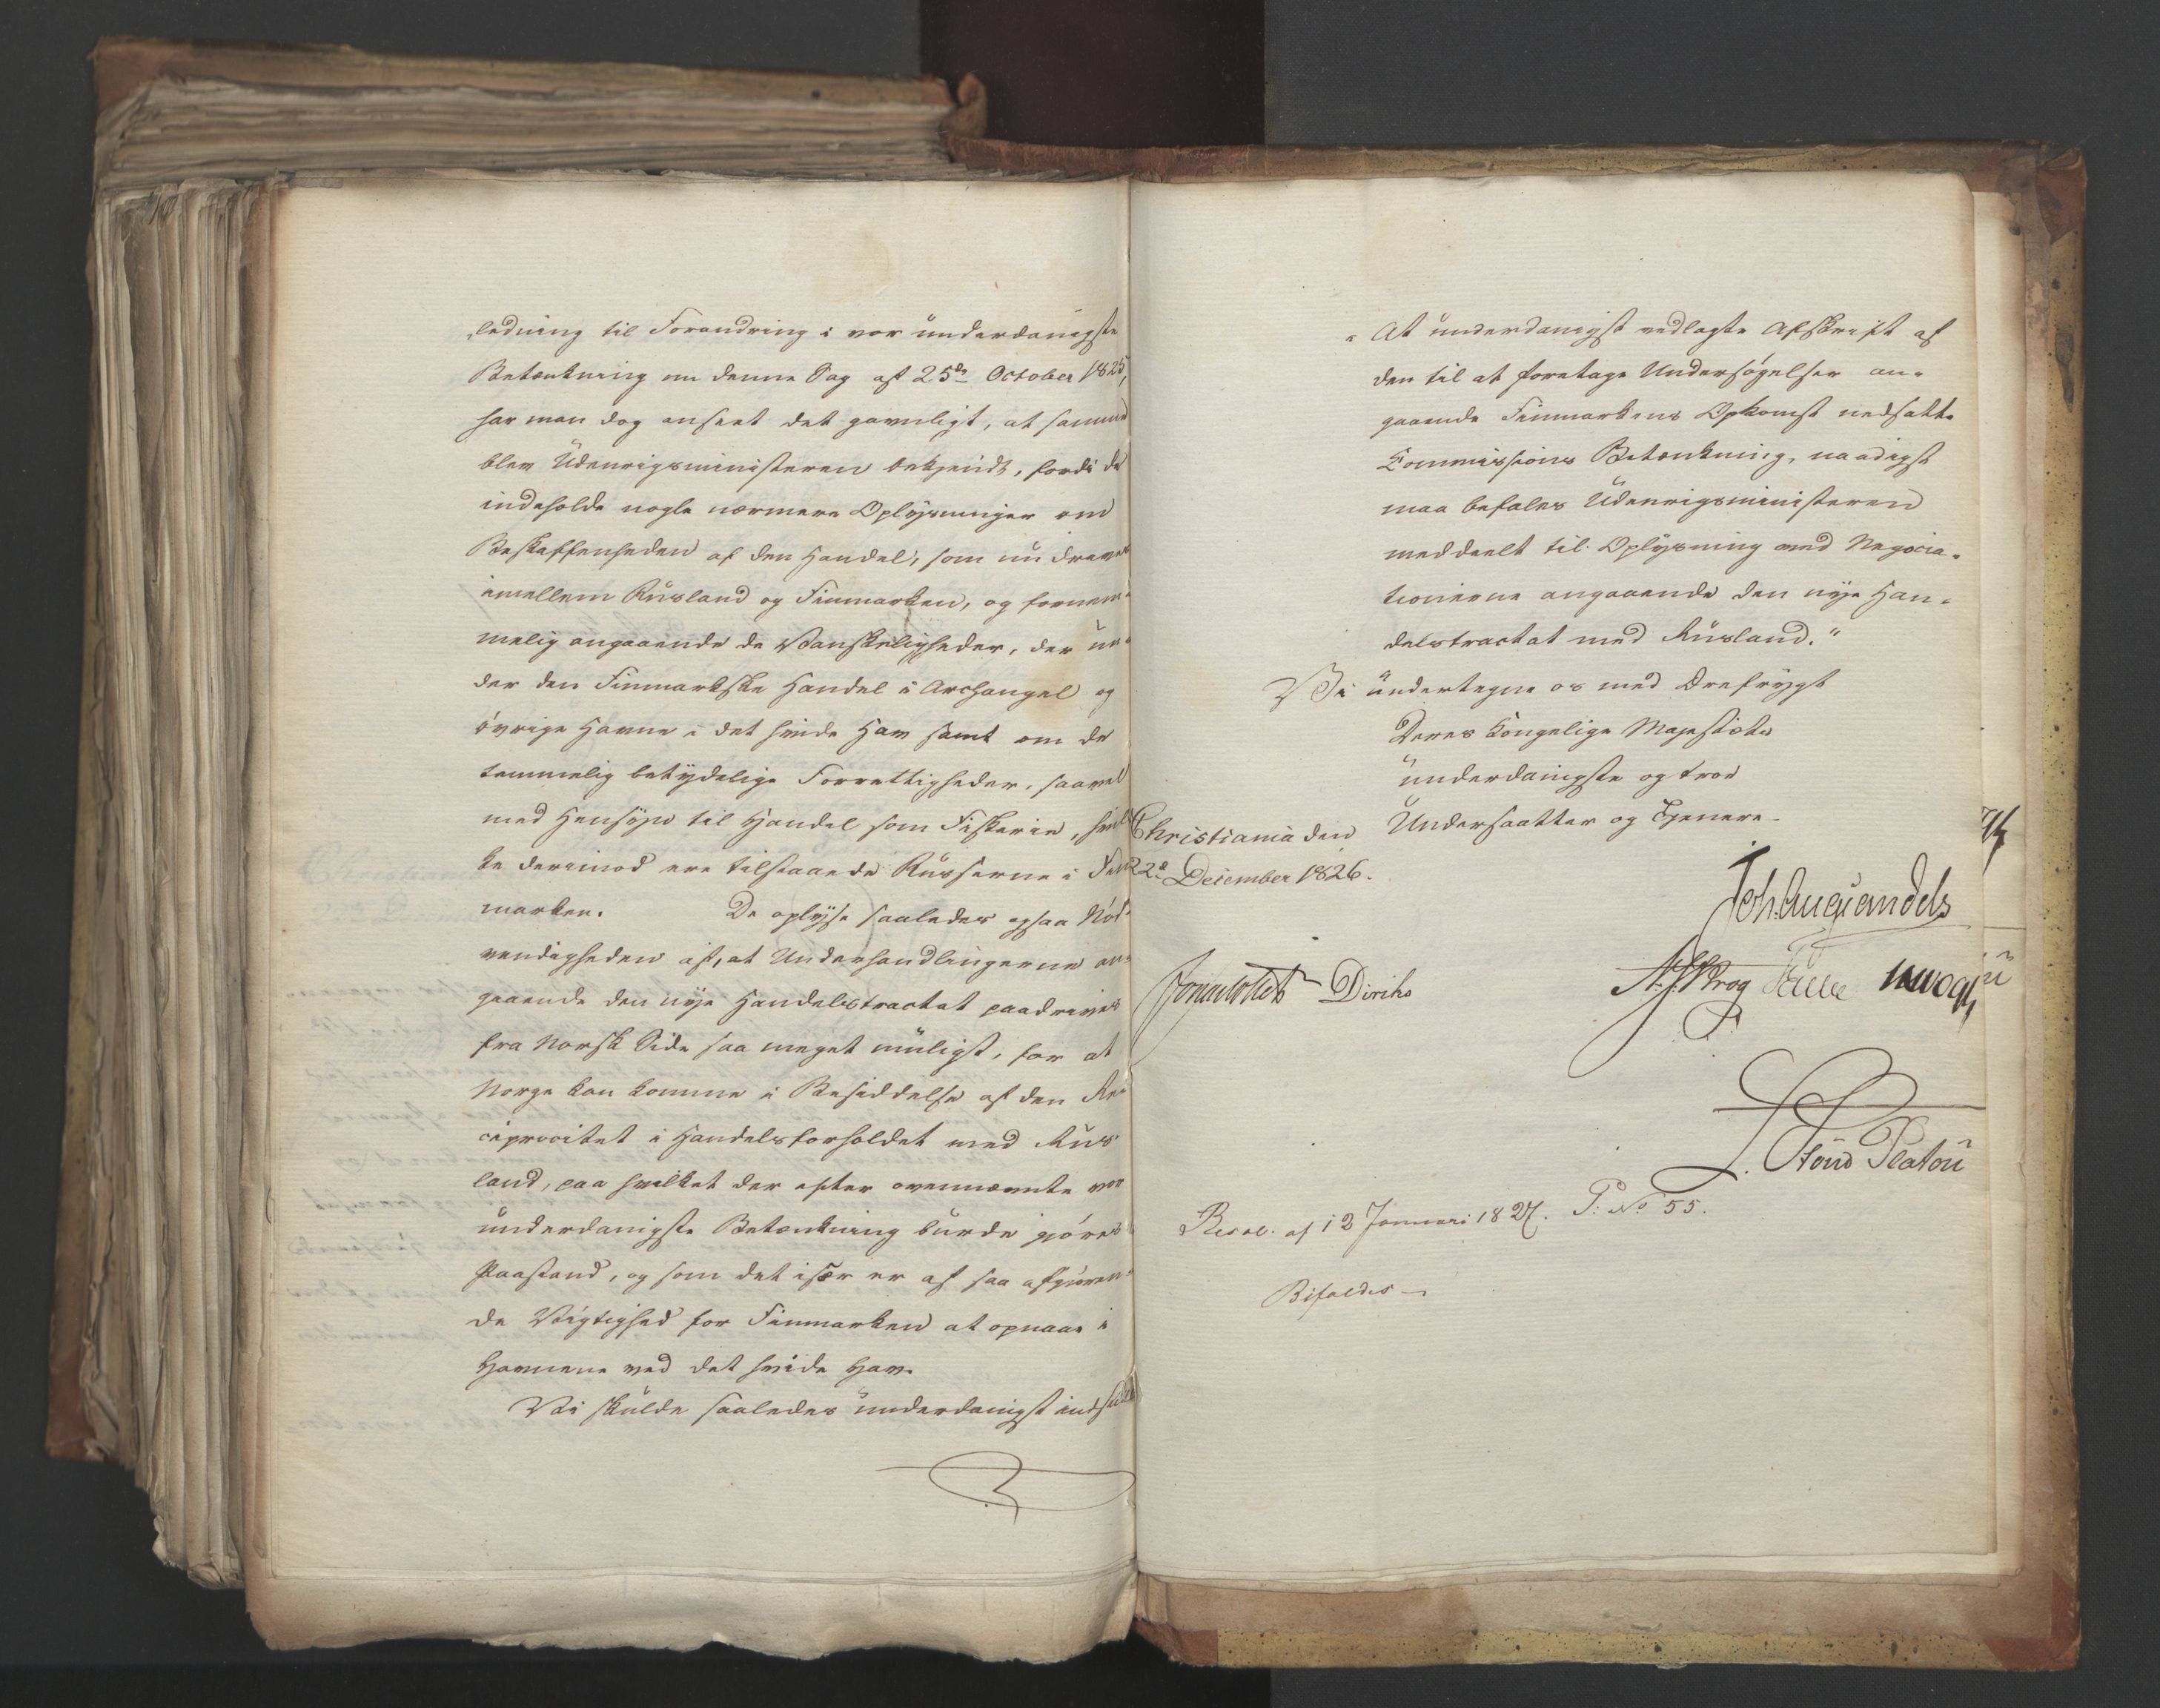 ledning til Forandring i vor underdanigste
Betænkning om denne Sag af 25de October 1825,
har man dog anseet det gavnligt, at samme
blev Udenrigsministeren bekjendt, fordi de
indeholde nogle nærmere Oplysninger om
Beskaffenheden af den Handel, som nu drives
imellem Rusland og Finmarken, og fornem-
melig angaaende de Vanskeligheder, der un-
der den Finmarkske Handel i Archangel og
øvrige Havne i det hvide Hav samt om de
temmelig betydelige Forrettigheder, saavel
med Hensyn til Handel som Fiskerie, hvil
ke derimod ere tilstaaede Russerne i Fin
marken. De oplyse saaledes ogsaa Nød-
vendigheden af, at Underhandlingerne an-
gaaende den nye Handelstractat paadrives
fra Norsk Side saa meget muligt, for at
Norge kan komme i Besiddelse af den Re-
ciprocitet i Handelsforholdet med Rus
land, paa hvilket der efter ovennævnte vor
underdanigste Betænkning burde gjøres
Paastand, og som det især er af saa afgjøren-
de Vigtighed for Finmarken at opnaae i
Havnene ved det hvide Hav.
Vi skulde saaledes underdanigst indstille
"At underdanigst vedlagte Afskrift af
den til at foretage Undersøgelser an-
gaaende Finmarkens Opkomst nedsatte
Commissions Betænkning, naadigst
maa befales Udenrigsministeren
meddeelt til Oplysning ved Negocia-
tionerne angaaende den nye Han-
delstractat med Rusland."
Vi undertegne os med Ærefrygt
Deres Kongelige Majestæts
underdanigste og troe
Undersaatter og Tjenere
Christiania den
22de December 1826.
Joh. Aug. Sandels
Jonas Collett Diriks
Krog
L. Stoud Platou
Resol. af 12 Januari 1827. P: No 55.
Bifaldes